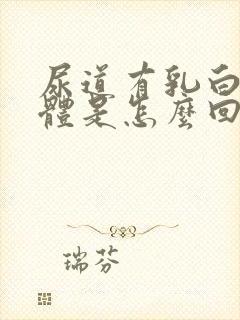 尿道有乳白
體是怎麼回
瑞芬